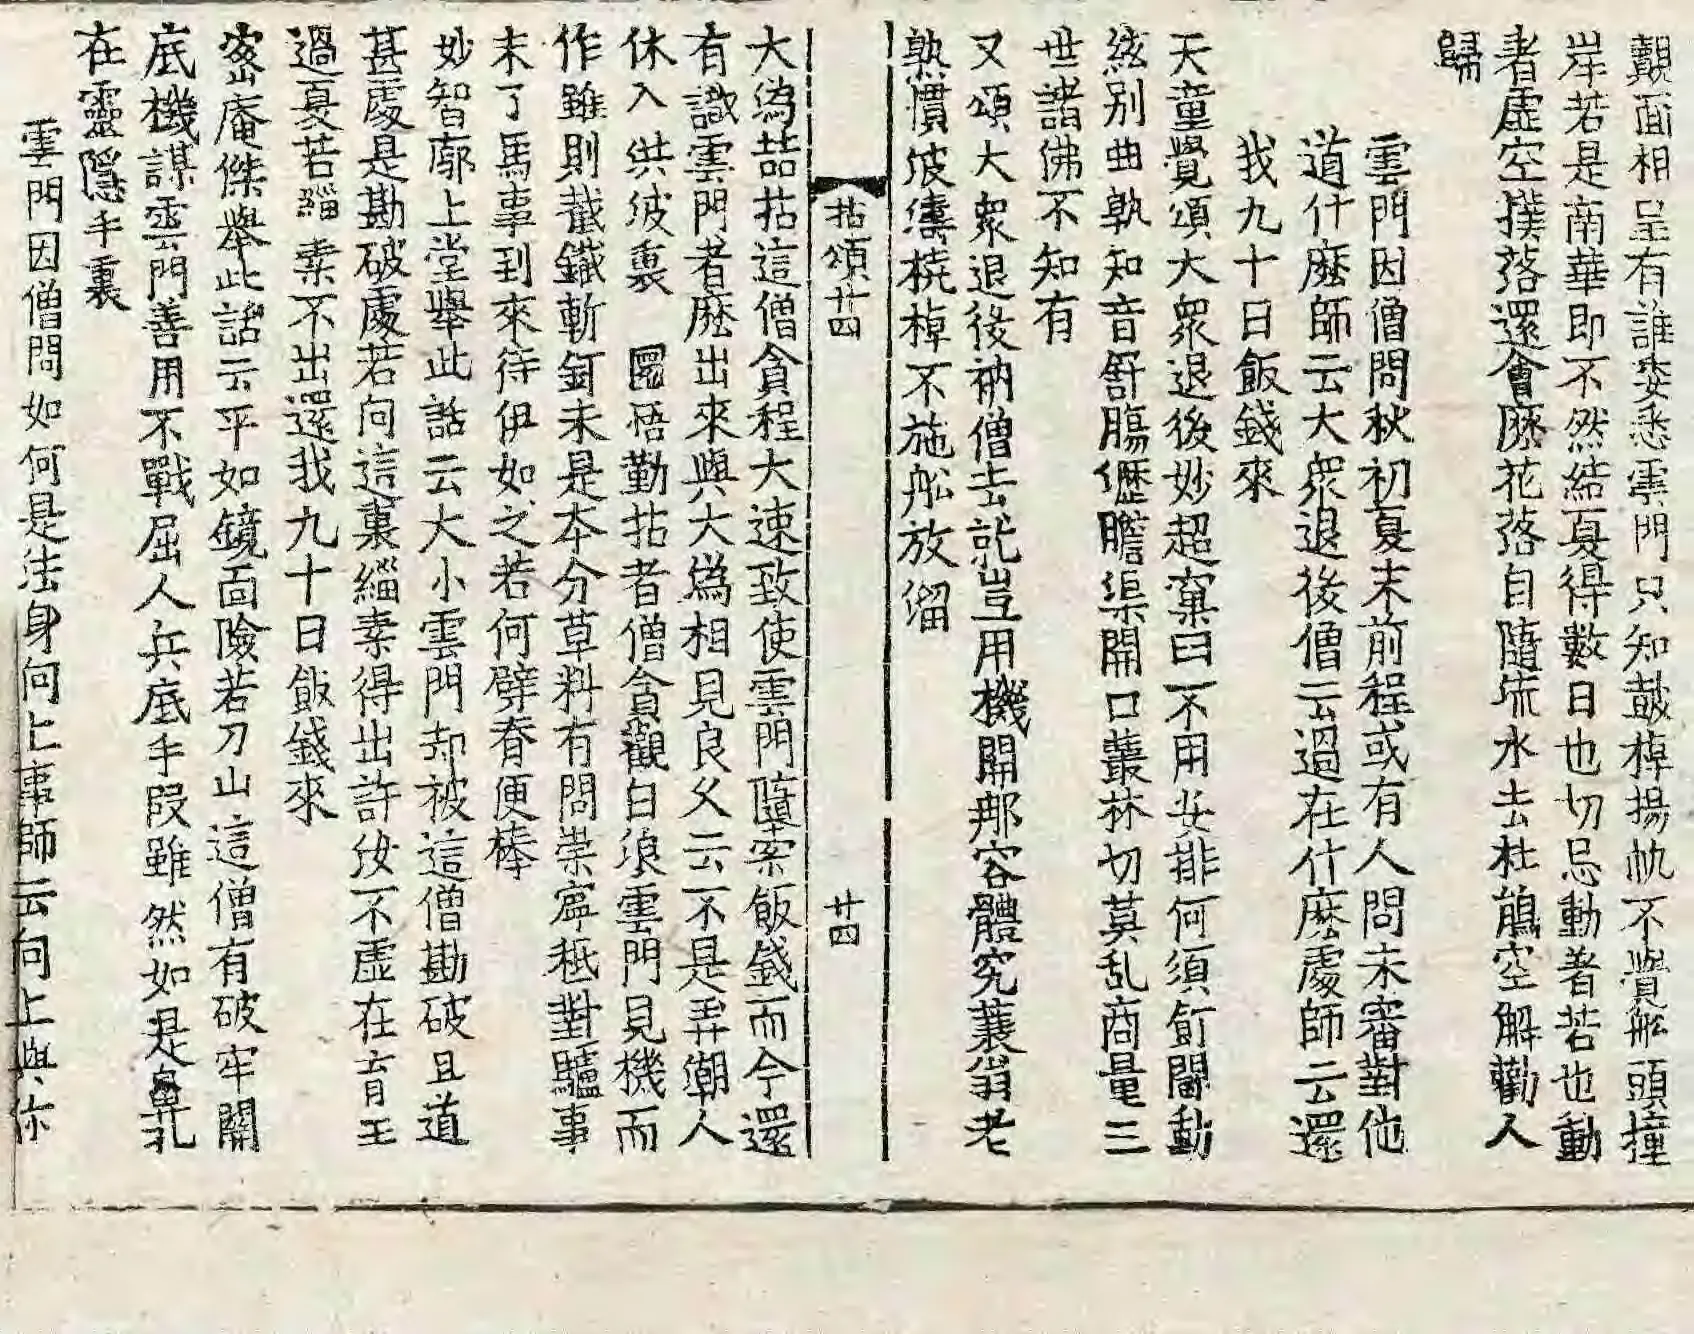 覿面相呈有誰委悉雲門只知皷棹揚帆不覺舩頭撞
岸若是南華即不然結夏得數日也切忌動著若也動
著虛空撲落還會麽花落自隨流水去杜鵑空解勸人
歸
雲門因僧問秋初夏末前程或有人問未審對他
道什麽師云大衆退後僧云過在什麽處師云還
我九十日飯錢來
天童覺頌大衆退後妙超窠臼不用安排何須飣閗動
絃別曲孰知音舒膓瀝膽渠開口叢林切莫乱商量三
世諸佛不知有
又頌大衆退後衲僧去就豈用機關那容體究蓑翁老
熟慣波濤橈棹不施舩放溜
拈頌廿四
廿四
大潙喆拈這僧貪程大速致使雲門隨案飯錢而今還
有識雲門者麽出來與大潙相見良久云不是弄潮人
休入洪波裏 圜悟勤拈者僧貪觀白浪雲門見機而
作雖則截鐵斬釘未是本分草料有問崇寧秪對驢事
未了馬事到來待伊如之若何劈脊便棒
妙智廓上堂舉此話云大小雲門却被這僧勘破且道
甚處是勘破處若向這裏緇素得出許汝不虛在育王
過夏若緇素不出還我九十日飯錢來
密庵傑舉此話云平如鏡面險若刀山這僧有破牢關
底機謀雲門善用不戰屈人兵底手段雖然如是鼻孔
在靈隱手裏
雲門因僧問如何是法身向上事師云向上與你